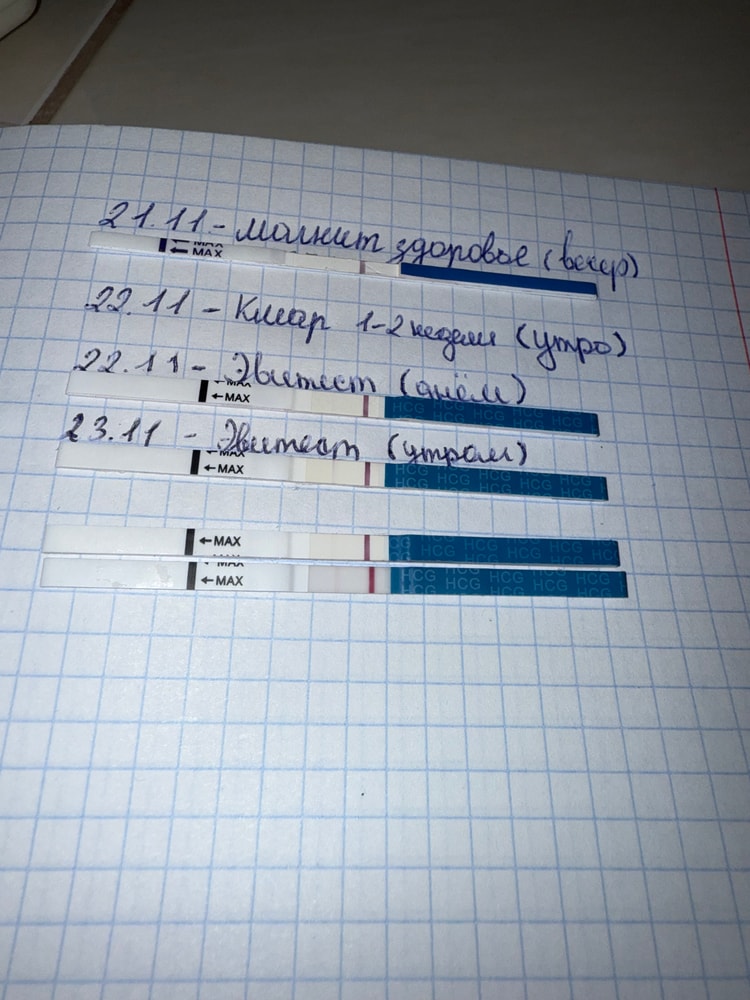 21.11 - магнит здоровье (вечер)
MAX
← MAX
22.11 - Клиар 1-2 недели (утро)
22.11 - Эвитест (днём)
MAX
← MAX
HCG HCG HCG HCG HCG
23.11 - Эвитест (утром)
MAX
← MAX
HCG HCG HCG HCG HCG
← MAX
HCG HCG HCG HCG HCG
MAX
← MAX
HCG HCG HCG HCG HCG